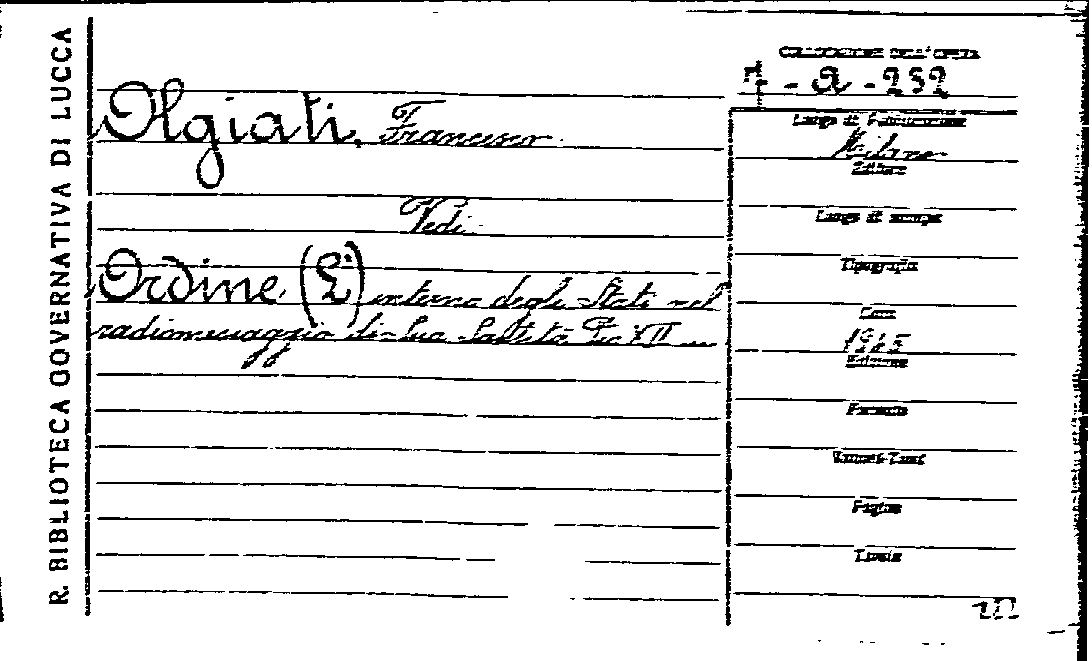 R. BIBLIOTECA GOVERNATIVA DI LUCCA
Olgiati, Francesco
Vedi
Ordine (L') interno degli Stati nel
radiomessaggio di Sua Santità Pio XII ...
COLLOCAZIONE DELL'OPERA
- a - 252
Luogo di Pubblicazione
Milano
Editore
Luogo di stampa
Tipografia
Data
1945
Edizione
Formato
Volumi-Tomi
Pagine
Lingua